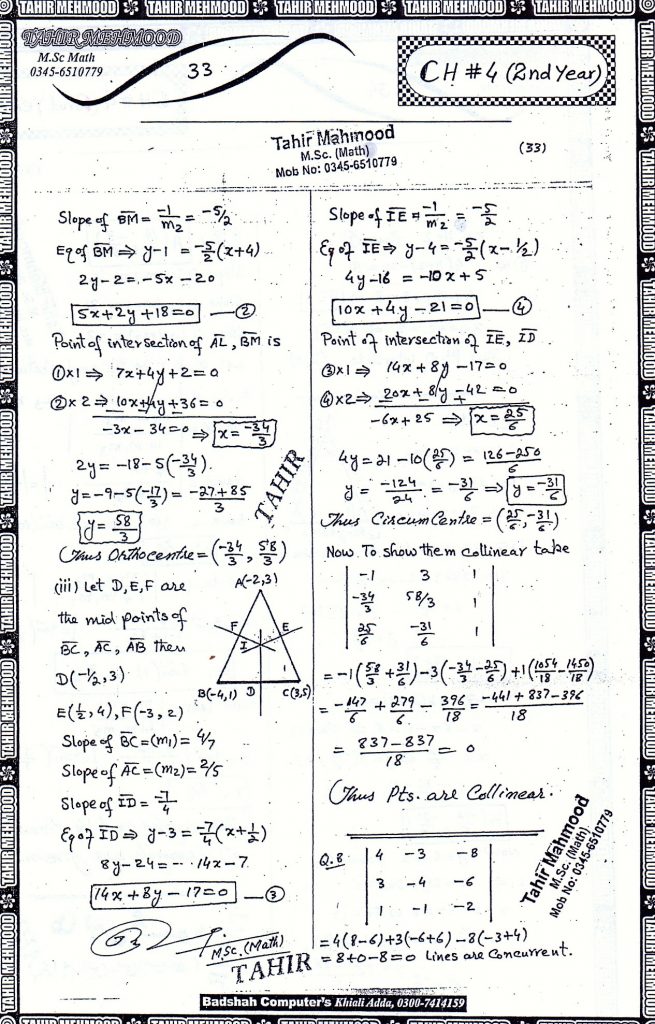 TAHIR MEHMOOD TAHIR MEHMOOD TAHIR MEHMOOD TAHIR MEHMOOD TAHIR MEHMOOD
TAHIR MEHMOOD
M.Sc Math
0345-6510779
33
CH #4 (2nd Year)
Tahir Mahmood
M.Sc. (Math)
Mob No: 0345-6510779
(33)
Slope of BM = -1/m₂ = -5/2
Eq of BM ⇒ y-1 = -5/2(x+4)
2y-2 = -5x-20
5x+2y+18=0 — ②
Point of intersection of AL, BM is
①×1 ⇒ 7x+4y+2=0
②×2 ⇒ 10x+4y+36=0
-3x-34=0 ⇒ x = -34/3
2y = -18-5(-34/3)
y = -9-5(-17/3) = -27+85/3
y = 58/3
Thus Orthocentre = (-34/3, 58/3)
(iii) Let D, E, F are
the mid points of
BC, AC, AB then
D(-1/2, 3)
E(1/2, 4), F(-3, 2)
Slope of BC = (m₁) = 4/7
Slope of AC = (m₂) = 2/5
Slope of ID = -7/4
Eq of ID ⇒ y-3 = -7/4(x+1/2)
8y-24 = -14x-7
14x+8y-17=0 — ③
A(-2,3)
F E
I
B(-4,1) D C(3,5)
TAHIR
M.Sc. (Math)
TAHIR
Slope of IE = -1/m₂ = -5/2
Eq of IE ⇒ y-4 = -5/2(x-1/2)
4y-16 = -10x+5
10x+4y-21=0 — ④
Point of intersection of IE, ID
③×1 ⇒ 14x+8y-17=0
④×2 ⇒ 20x+8y-42=0
-6x+25 ⇒ x = 25/6
4y = 21-10(25/6) = 126-250/6
y = -124/24 = -31/6 ⇒ y = -31/6
Thus CircumCentre = (25/6, -31/6)
Now To show them collinear take
-1 3 1
-34/3 58/3 1
25/6 -31/6 1
= -1(58/3+31/6)-3(-34/3-25/6)+1(1054/18-1450/18)
= -147/6 + 279/6 - 396/18 = -441+837-396/18
= 837-837/18 = 0
Thus Pts. are Collinear.
Tahir Mahmood
M.Sc. (Math)
Mob No: 0345-6510779
Q.8 4 -3 -8
3 -4 -6
1 -1 -2
= 4(8-6)+3(-6+6)-8(-3+4)
= 8+0-8=0 Lines are Concurrent.
Badshah Computer's Khiali Adda, 0300-7414159